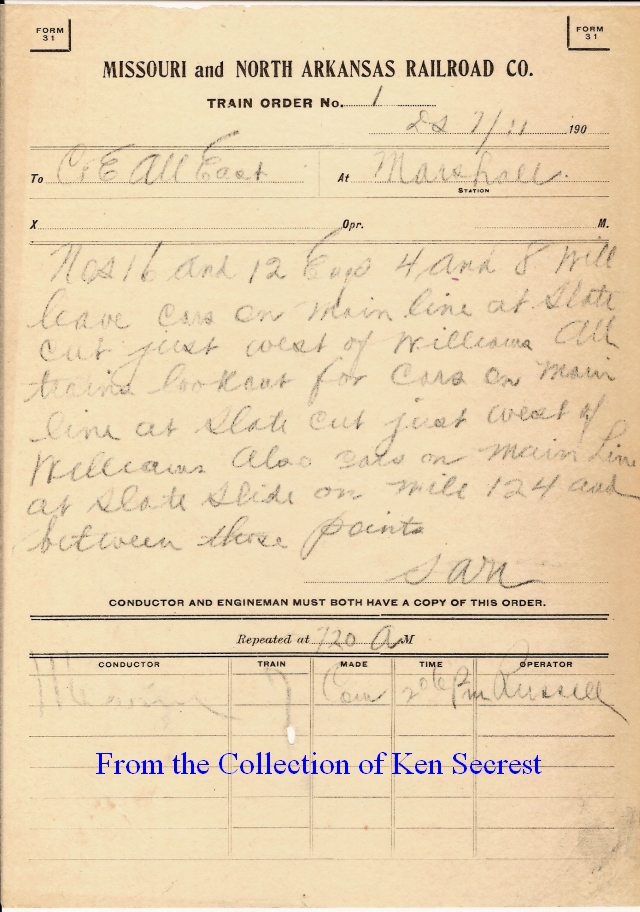 FORM 31
FORM 31
MISSOURI and NORTH ARKANSAS RAILROAD CO.
TRAIN ORDER No. 1
7/11 190
To C&E All East At Marshall.
STATION
X Opr. M.
Nos 16 and 12 Engs 4 and 8 will
leave cars on main line at Slate
cut just west of Williams All
trains lookout for cars on main
line at Slate cut just west of
Williams Also cars on main Line
at Slate Slide on mile 124 and
between those points
CONDUCTOR AND ENGINEMAN MUST BOTH HAVE A COPY OF THIS ORDER.
Repeated at 720 A M
CONDUCTOR TRAIN MADE TIME OPERATOR
Com 206 Pm Russell
From the Collection of Ken Secrest